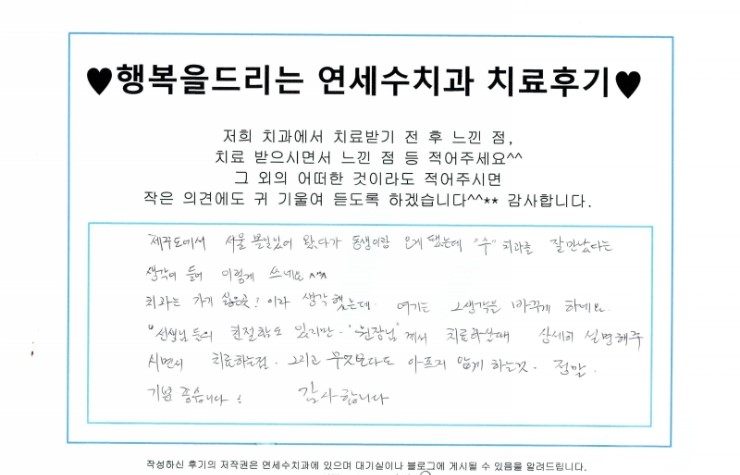 ♥행복을드리는 연세수치과 치료후기♥
저희 치과에서 치료받기 전 후 느낀 점,
치료 받으시면서 느낀 점 등 적어주세요^^
그 외의 어떠한 것이라도 적어주시면
작은 의견에도 귀 기울여 듣도록 하겠습니다^^** 감사합니다.
제주도에서 서울 볼일있어 왔다가 동생이랑 오게 됐는데 "수" 치과를 잘만났다는
생각이 들어 이렇게 쓰네요 ^^
치과는 가기 싫은곳! 이라 생각했는데. 여기는 그생각을 바꾸게 하네요.
"선생님들의 친절함도 있지만 · '원장님' 께서 치료하실때 상세히 설명해주
시면서 치료하는점. 그리고 무엇보다도 아프지 않게 하는것. 정말.
기분 좋습니다! 감사합니다
작성하신 후기의 저작권은 연세수치과에 있으며 대기실이나 블로그에 게시될 수 있음을 알려드립니다.